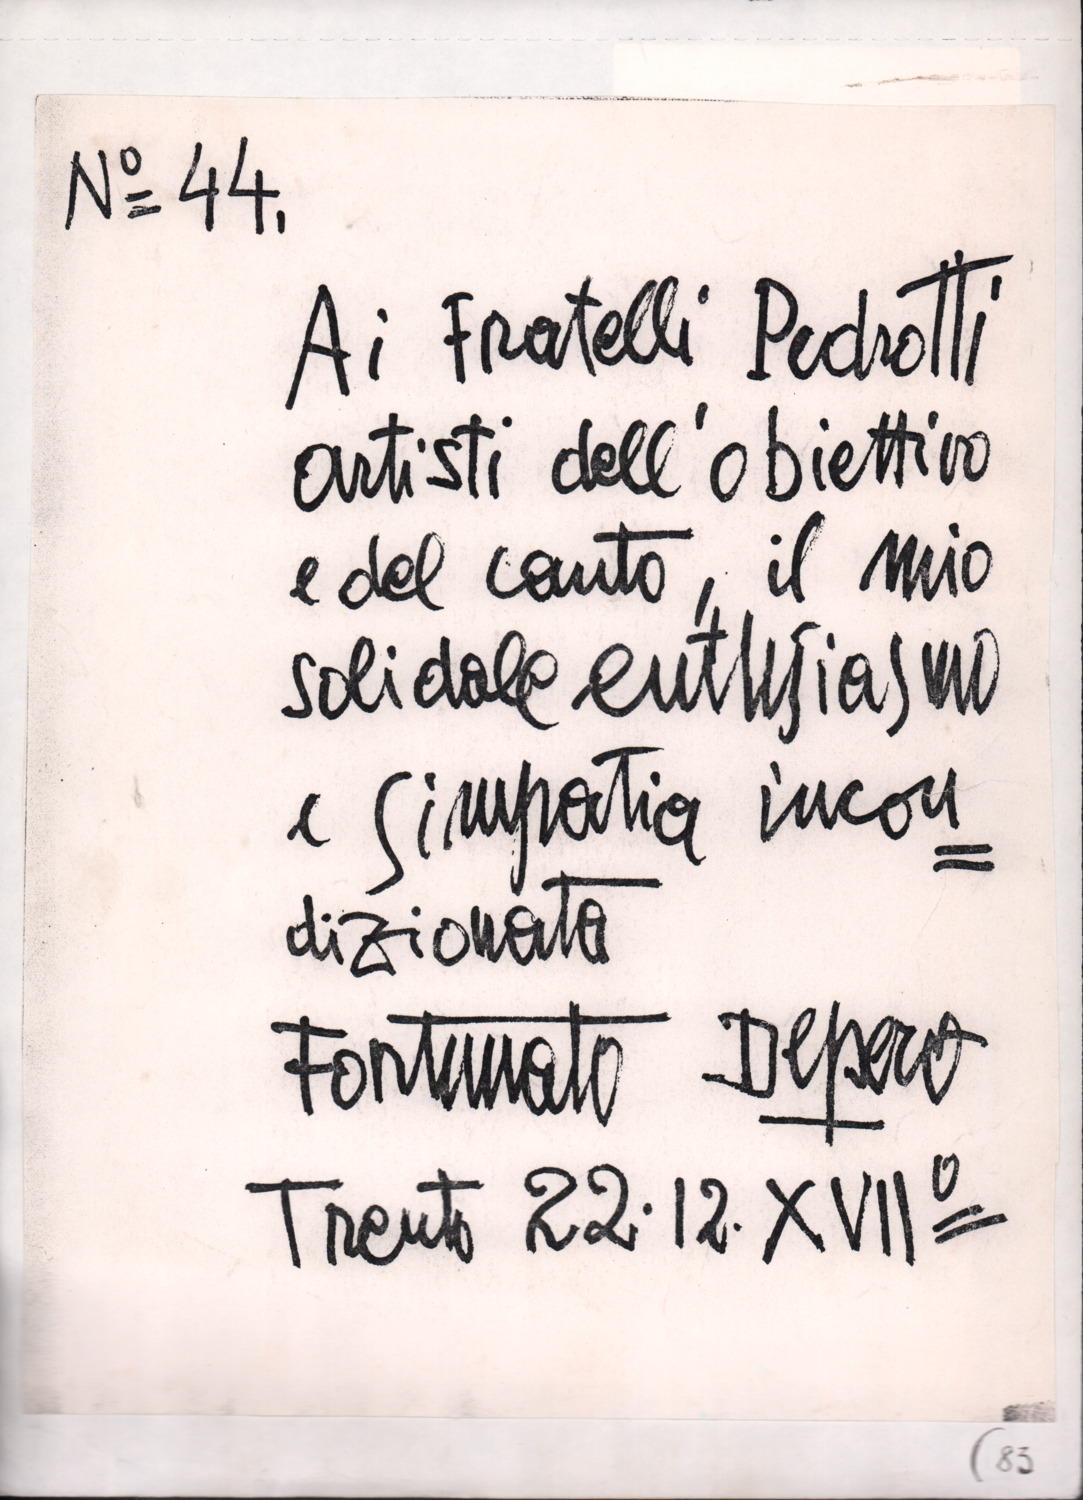 Nº 44.
Ai Fratelli Pedrotti
artisti dell'obiettivo
e del canto, il mio
solidale enthusiasmo
e simpatia incon=
dizionata
Fortunato Depero
Trento 22.12.XVIIº
(83